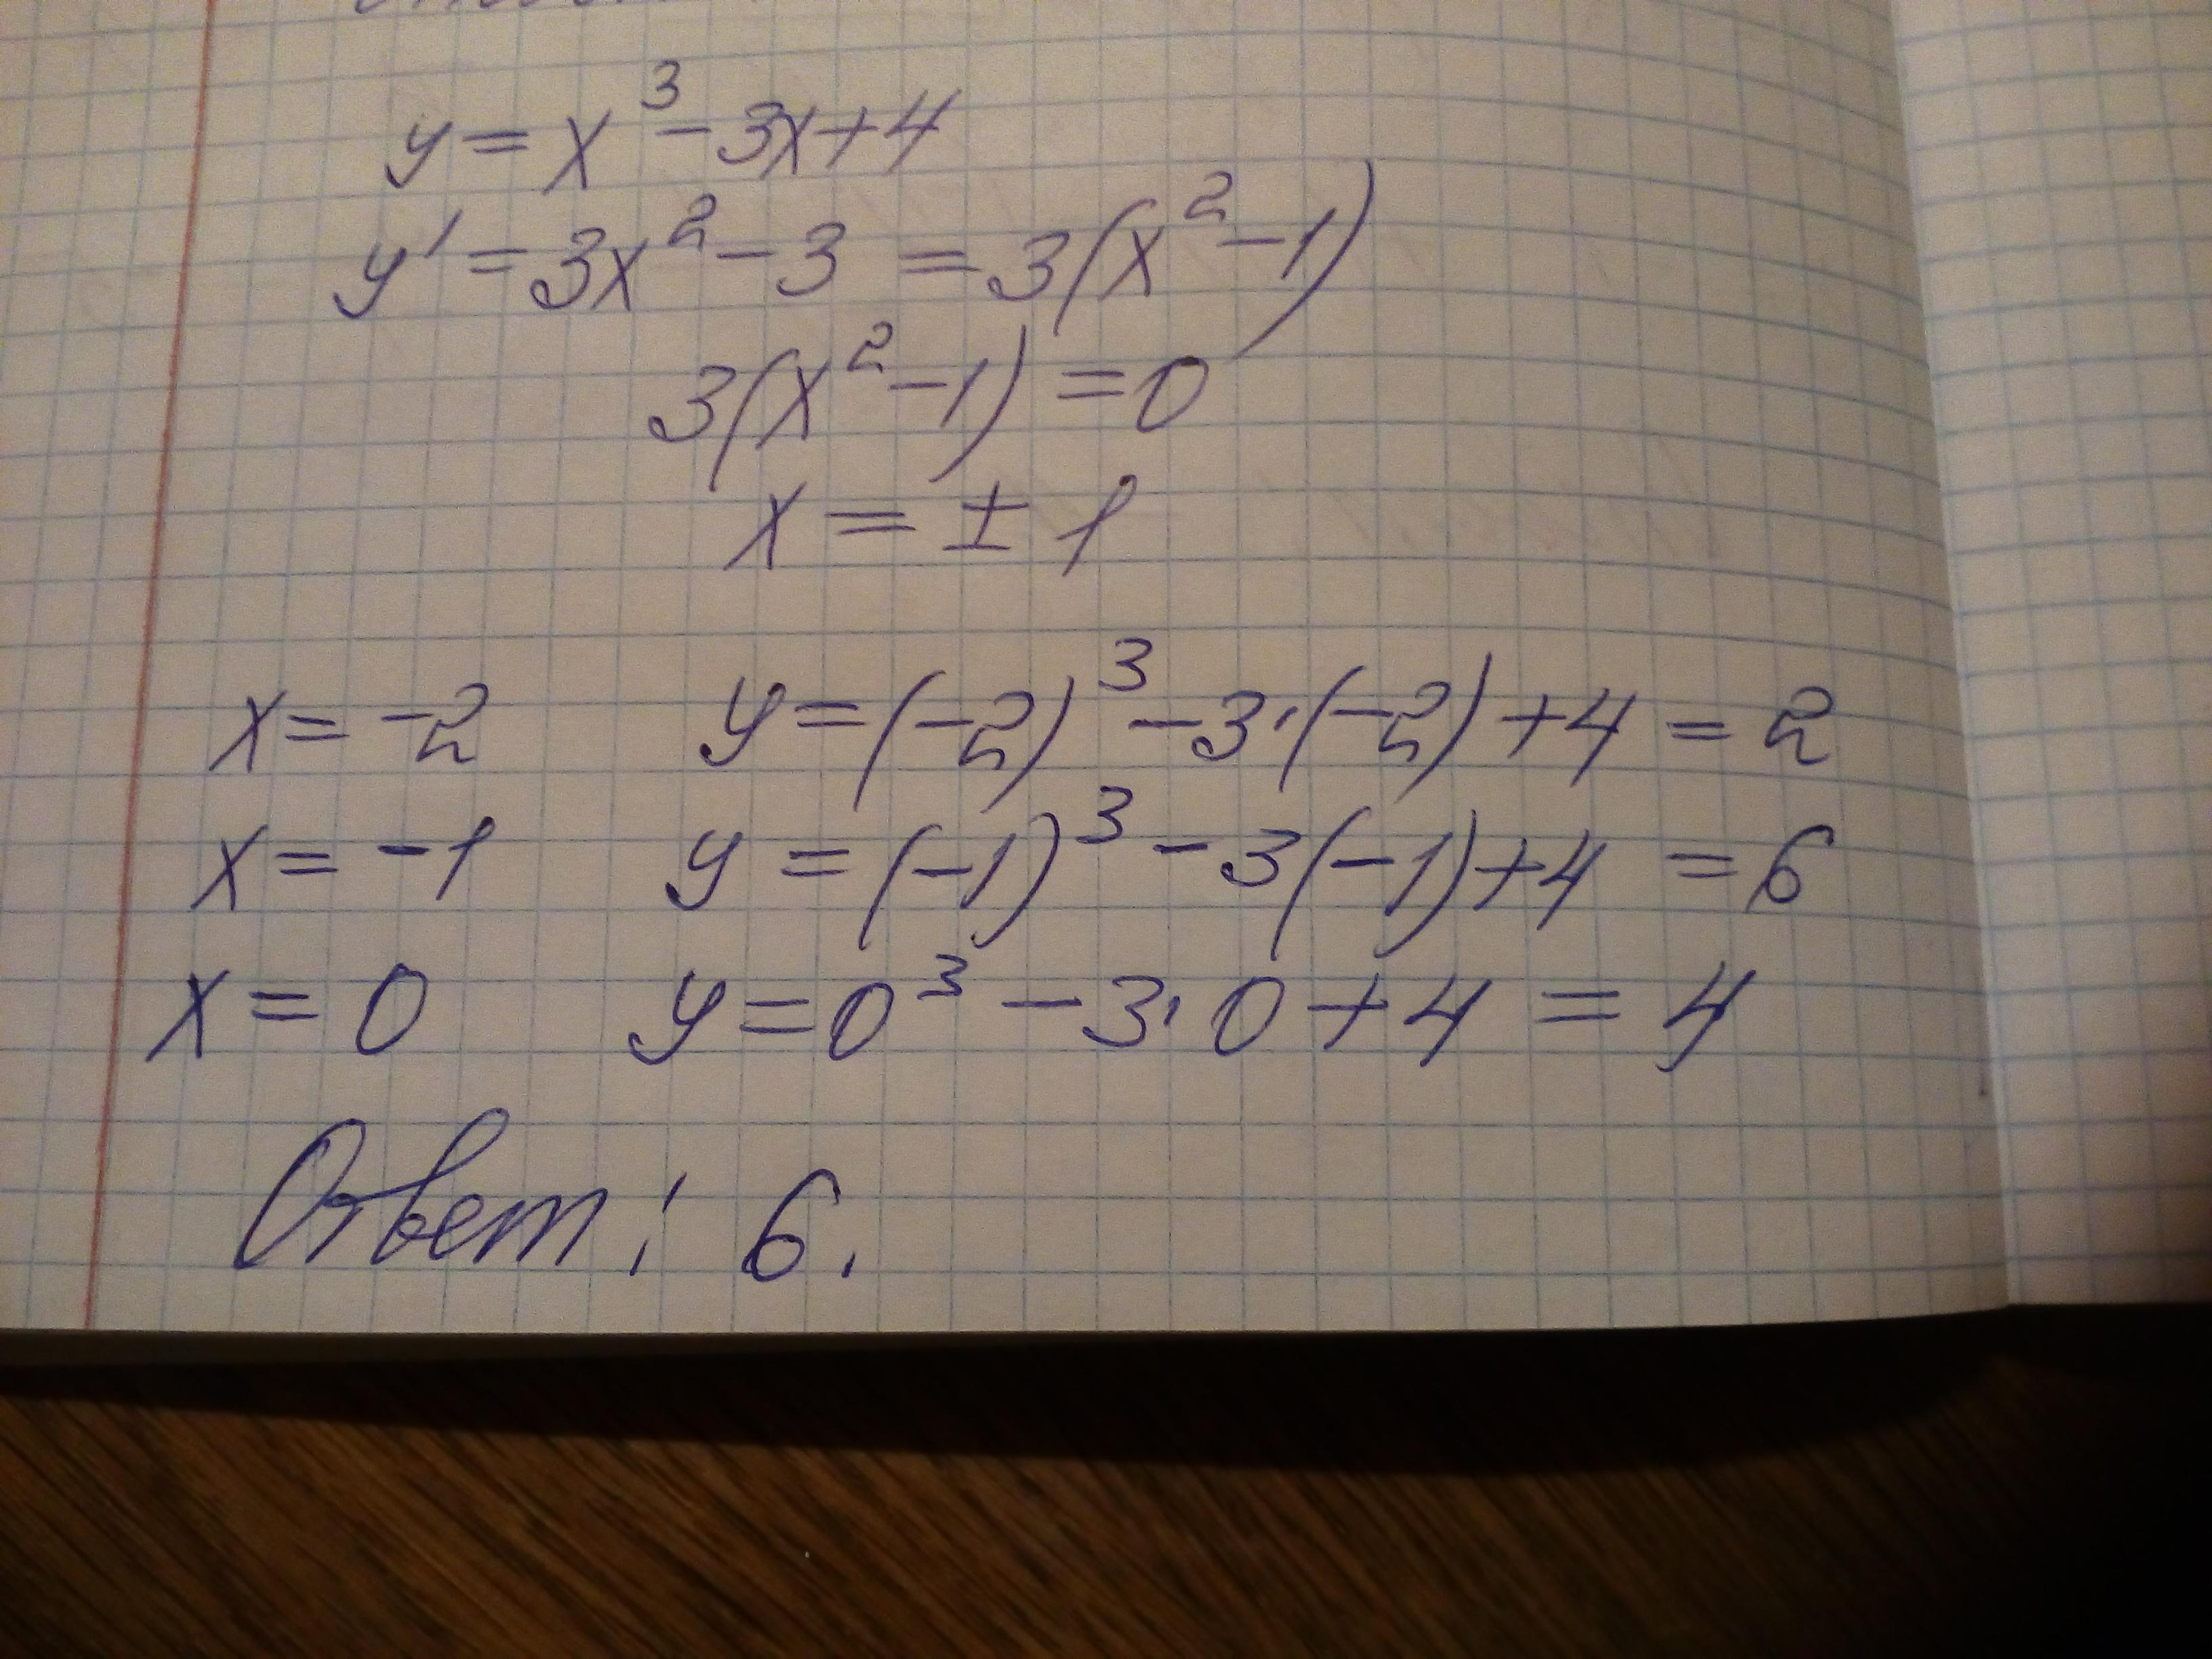 y = x³ - 3x + 4
y' = 3x² - 3 = 3(x² - 1)
3(x² - 1) = 0
x = ± 1
x = -2 y = (-2)³ - 3·(-2) + 4 = 2
x = -1 y = (-1)³ - 3(-1) + 4 = 6
x = 0 y = 0³ - 3·0 + 4 = 4
Ответ: 6.